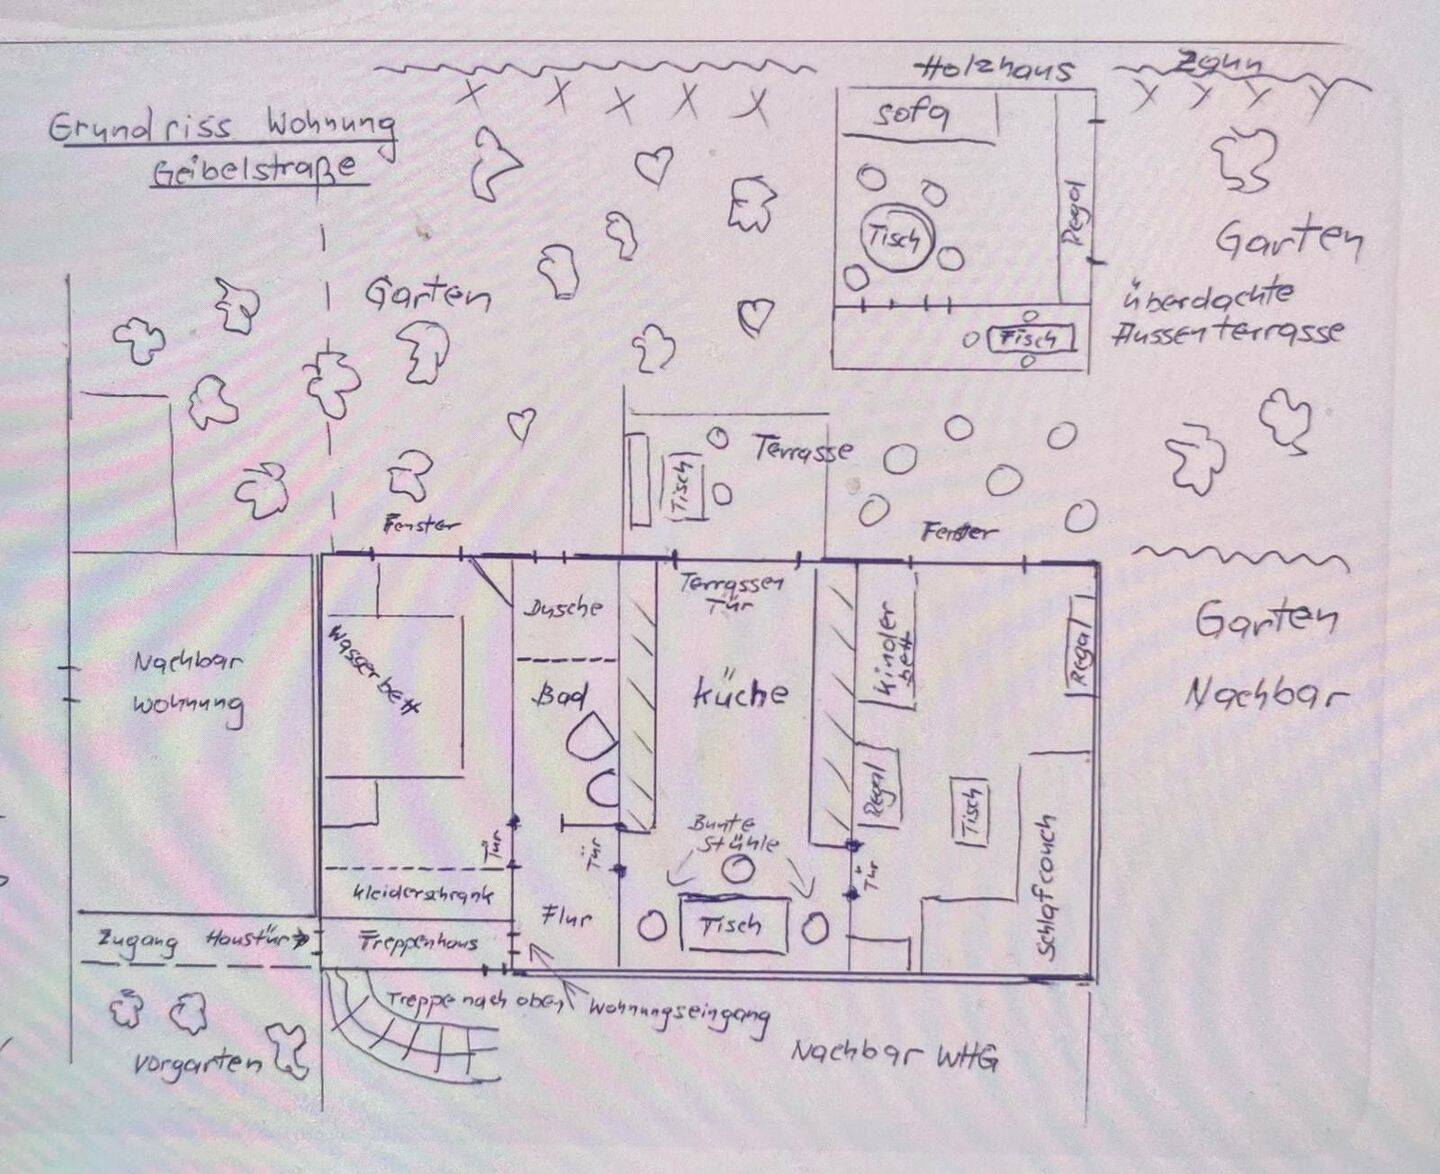 Holzhaus
Zaun
Grundriss Wohnung
Geibelstraße
Sofa
Tisch
Regal
Garten
Garten
überdachte
Aussenterrasse
Tisch
Terrasse
Tisch
Fenster
Fenster
Terrassen
Tür
Dusche
Nachbar
Wohnung
Wasserbett
Bad
Küche
Kinder
bett
Regal
Garten
Nachbar
Regal
Tisch
Bunte
Stühle
Tür
Tür
Tür
Kleiderschrank
Flur
Tisch
Schlafcouch
Zugang Haustür
Treppenhaus
Treppe nach oben
Wohnungseingang
Vorgarten
Nachbar WHG